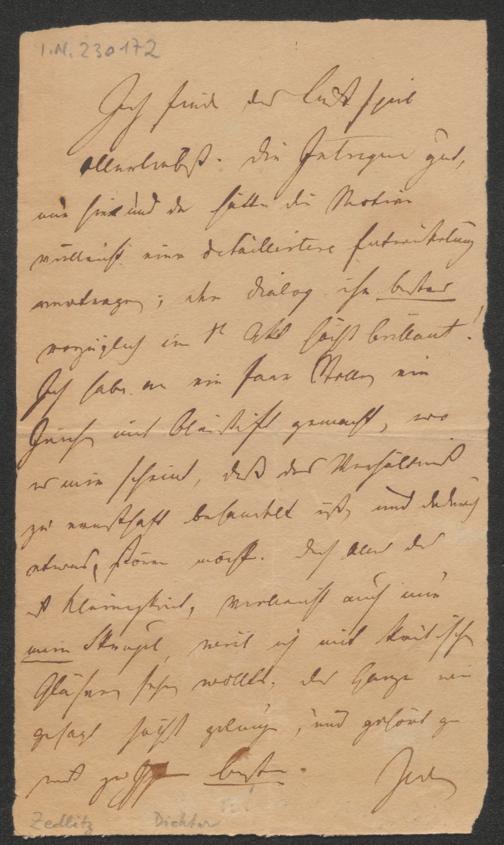 I.N. 230172
Ich finde das Lustspiel
allerliebst. Die Intrigue gut,
nur hie und da hätten die Motive
vielleicht eine detaillirtere Entwickelung
vertragen; der Dialog ist
vorzüglich im 1t Akt höchst brillant!
Ich habe an ein paar Stellen ein
Zeichen mit Bleistift gemacht, wo
es mir scheint, daß das Verhältniß
zu ernsthaft behandelt ist, und dadurch
etwas stören möchte. Doch aber das
ist Kleinigkeit, vielleicht auch nur
mein Skrupel, weil ich mit kritischen
Gläsern sehen wollte. Das Ganze wie
gesagt höchst gelungen, und gehört
mit
Zedlitz Dichter